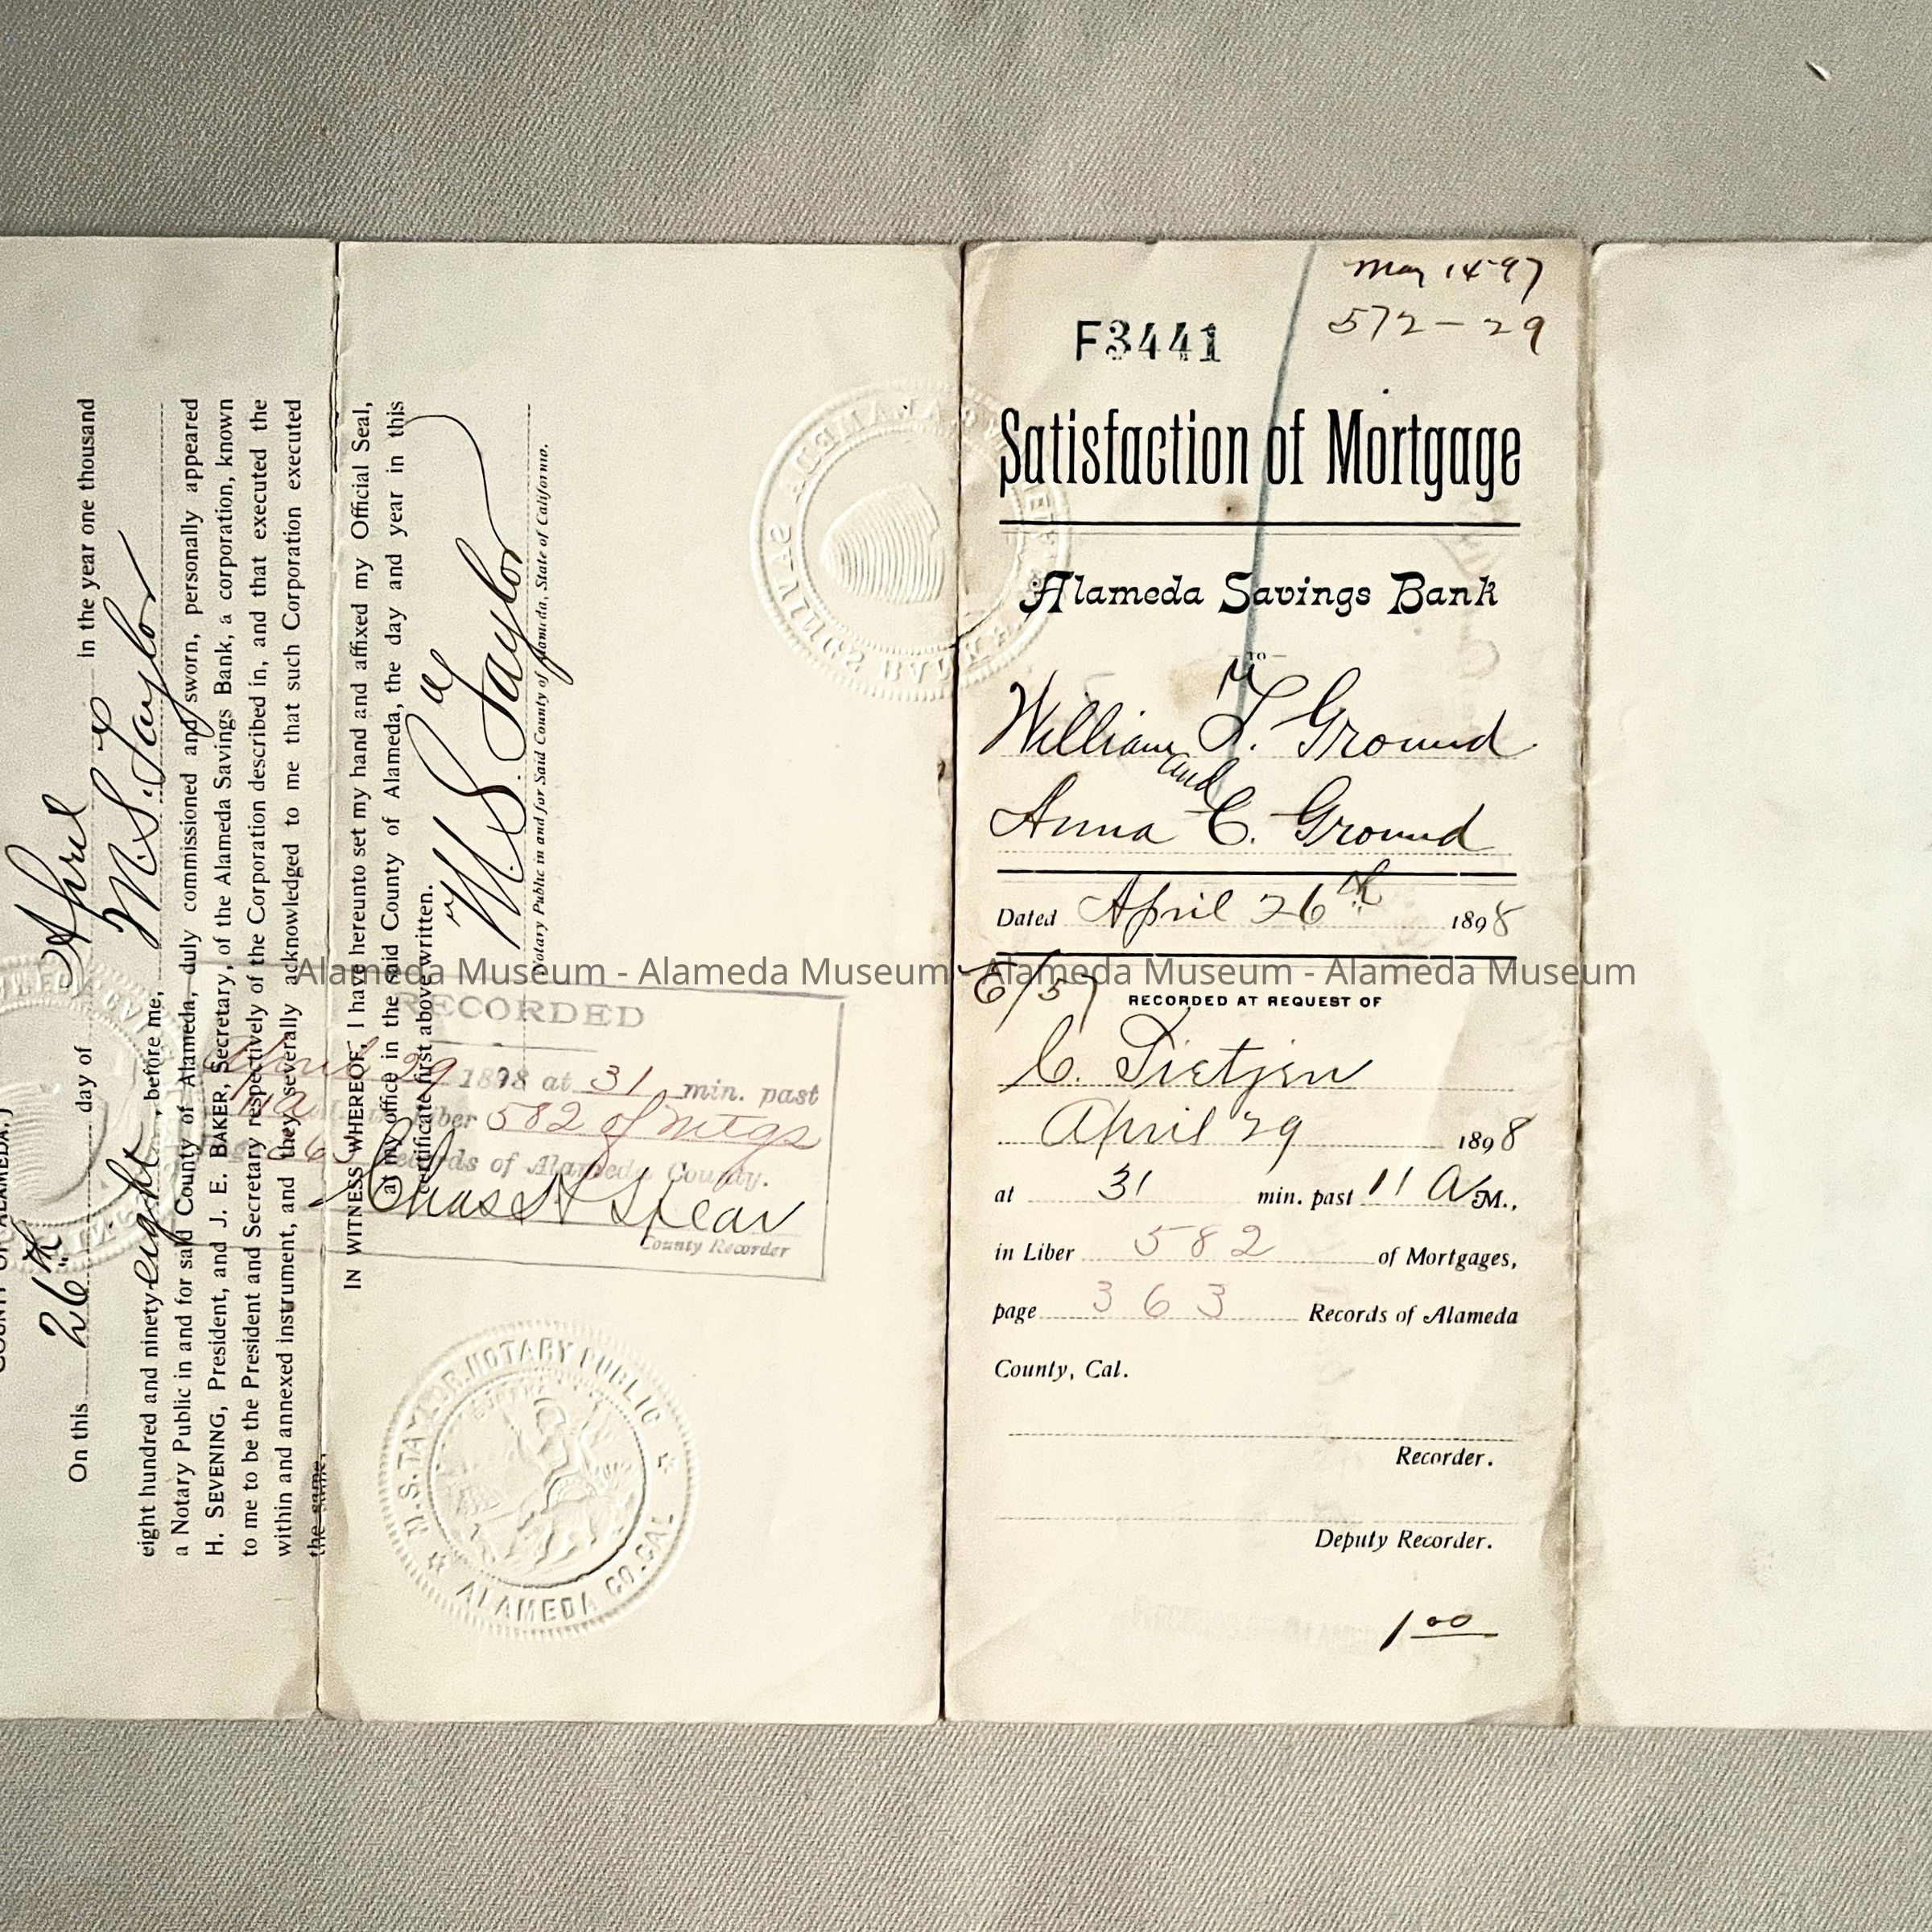 COUNTY OF ALAMEDA,
On this 26th day of April in the year one thousand
eight hundred and ninety-eight, before me, M. S. Taylor
a Notary Public in and for said County of Alameda, duly commissioned and sworn, personally appeared
H. SEVENING, President, and J. E. BAKER, Secretary, of the Alameda Savings Bank, a corporation, known
to me to be the President and Secretary respectively of the Corporation described in, and that executed the
within and annexed instrument, and they severally acknowledged to me that such Corporation executed
the same.
IN WITNESS WHEREOF, I have hereunto set my hand and affixed my Official Seal,
at my office in the said County of Alameda, the day and year in this
certificate first above written.
M. S. Taylor
Notary Public in and for Said County of Alameda, State of California.
RECORDED
April 29 1898 at 31 min. past
Liber 582 of Mtgs
363 Records of Alameda County.
Chas H Spear
County Recorder
M. S. TAYLOR, NOTARY PUBLIC
ALAMEDA CO. CAL.
ALAMEDA SAVINGS BANK
May 14 97
572-29
F3441
Satisfaction of Mortgage
Alameda Savings Bank
—TO—
William T. Ground
and
Anna C. Ground
Dated April 26th 1898
RECORDED AT REQUEST OF
C. Tietjen
April 29 1898
at 31 min. past 11 A M.,
in Liber 582 of Mortgages,
page 363 Records of Alameda
County, Cal.
Recorder.
Deputy Recorder.
1 00
Alameda Museum - Alameda Museum - Alameda Museum - Alameda Museum